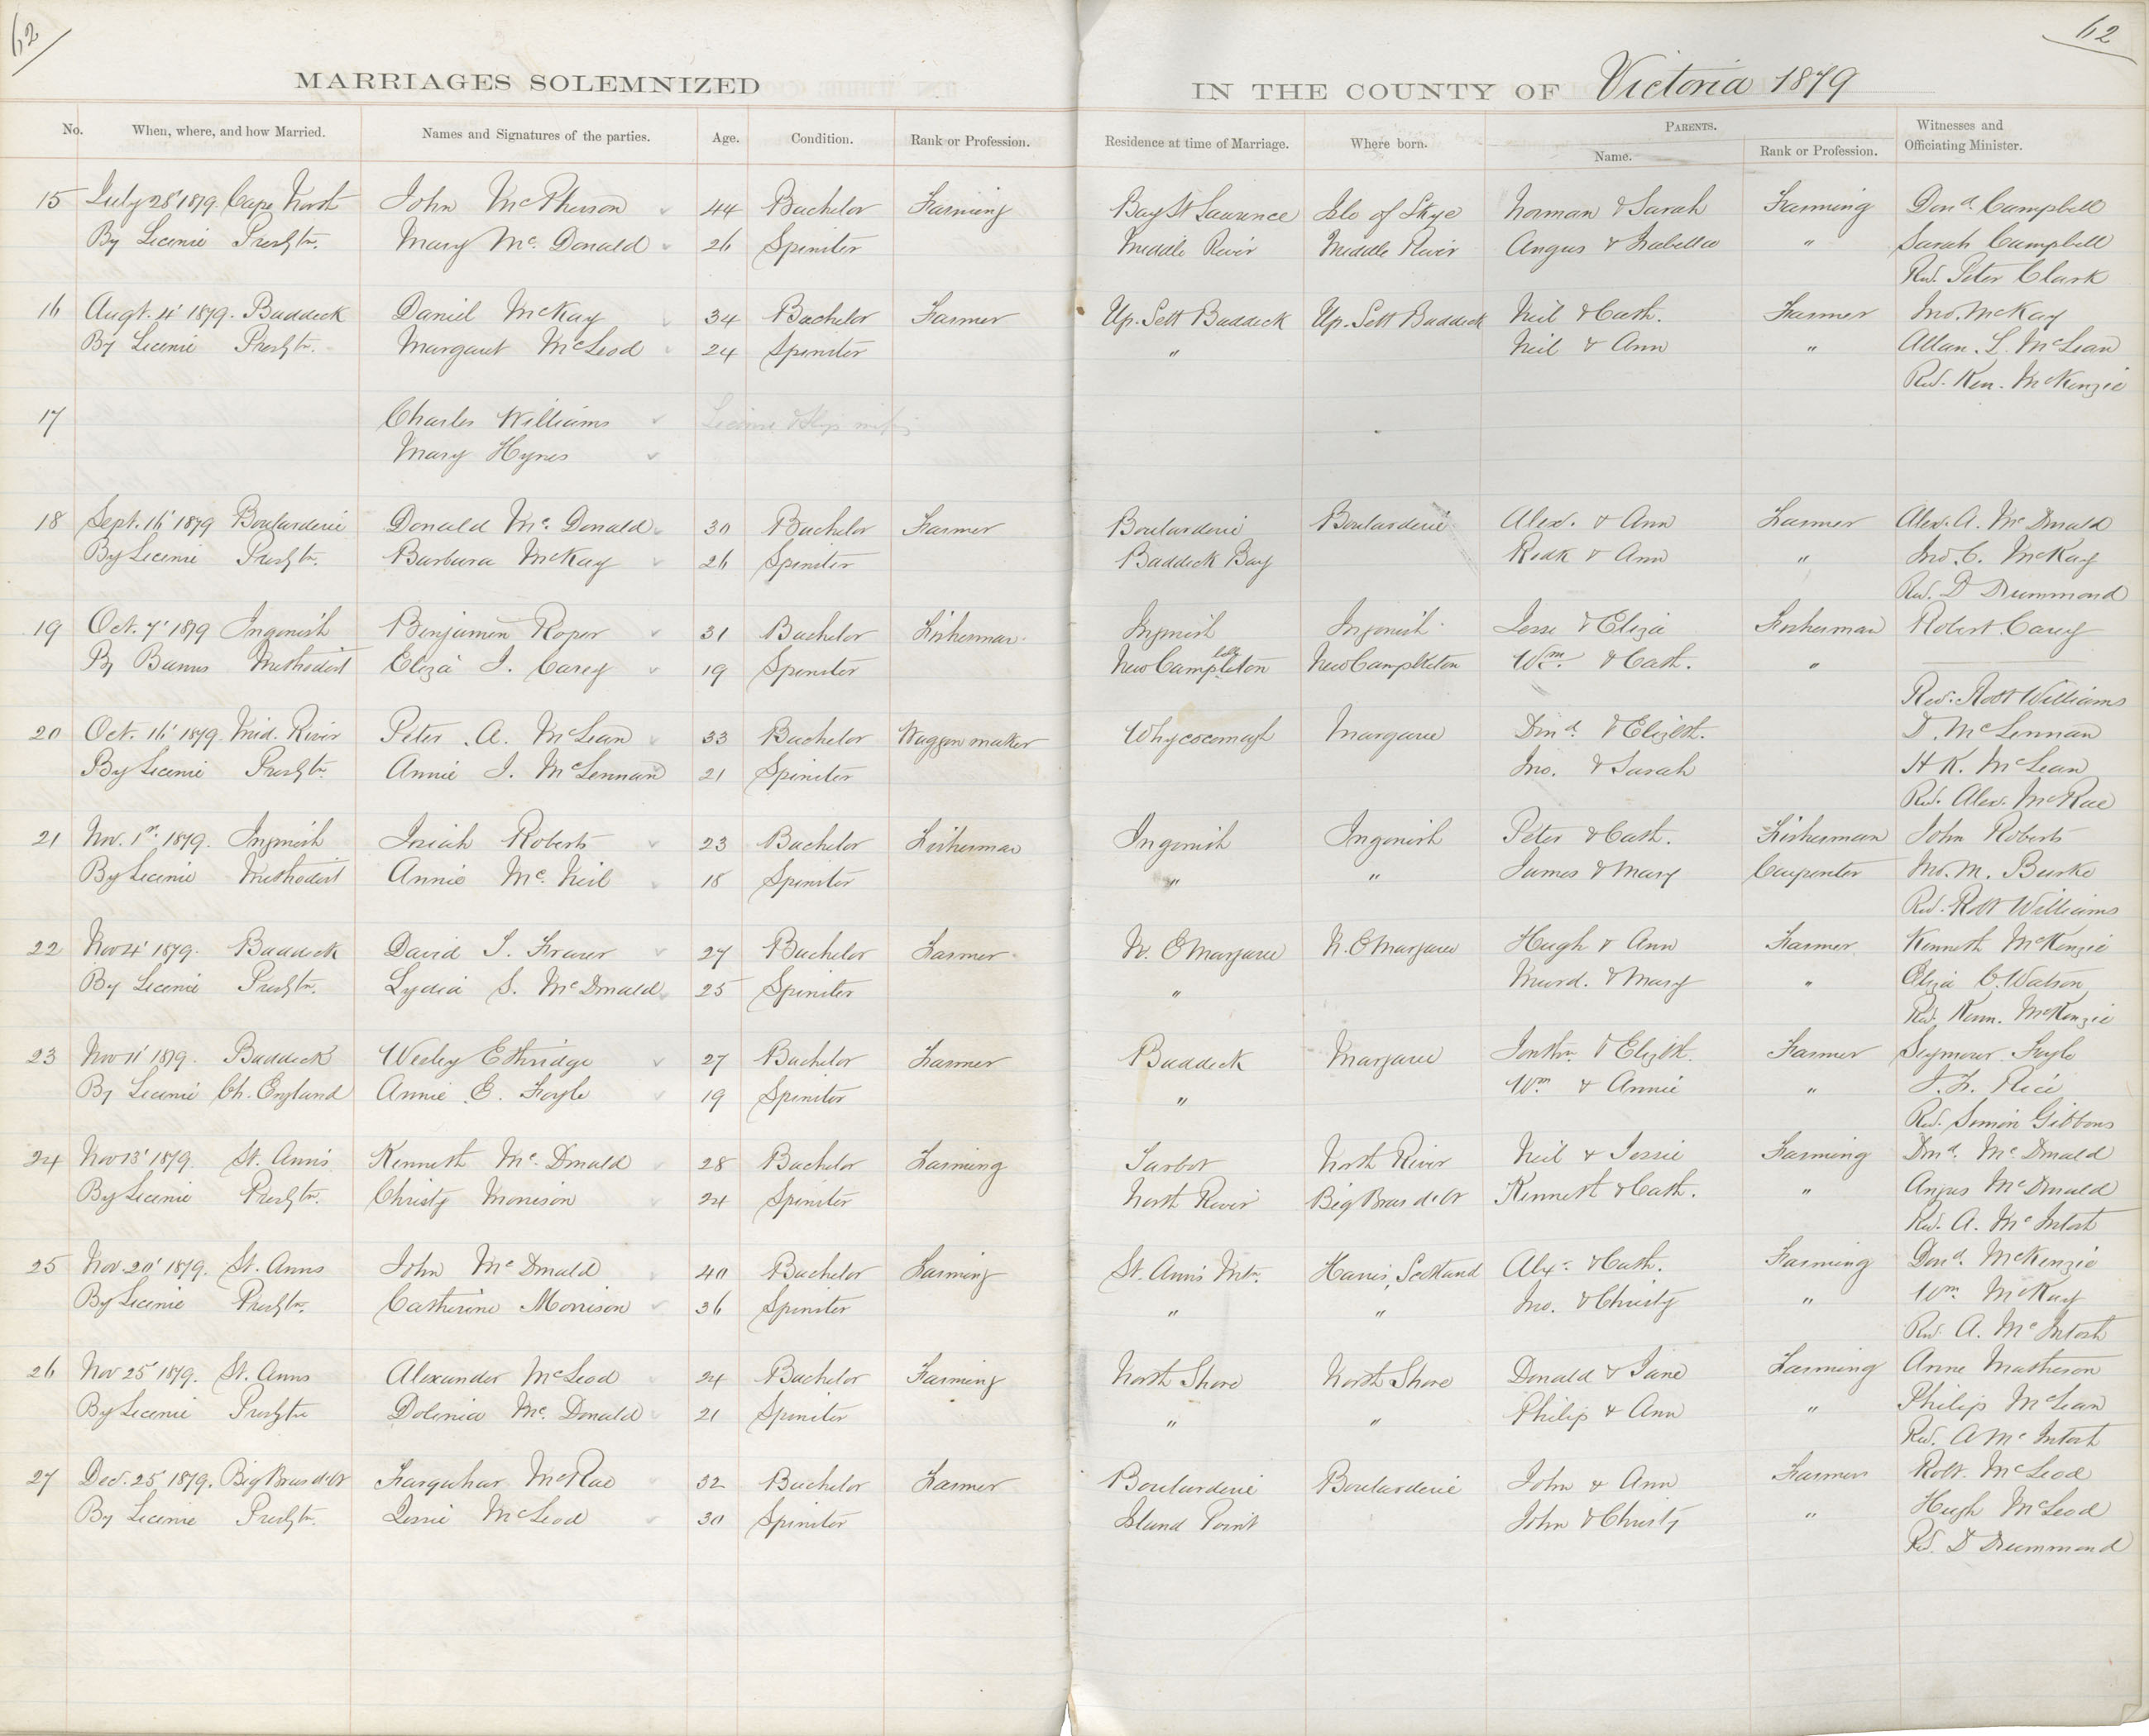 62
62
MARRIAGES SOLEMNIZED IN THE COUNTY OF Victoria 1879
No. When, where, and how Married. Names and Signatures of the parties. Age. Condition. Rank or Profession. Residence at time of Marriage. Where born. PARENTS. Name. Rank or Profession. Witnesses and Officiating Minister.
15 July 28' 1879. Cape North John McPherson 44 Bachelor Farming Bay St Lawrence Isle of Skye Norman & Sarah Farming Dond. Campbell
By License Presbtn. Mary Mc. Donald 26 Spinster Middle River Middle River Angus & Isabella " Sarah Campbell
Rev. Peter Clark
16 Augt. 4' 1879. Baddeck Daniel McKay 34 Bachelor Farmer Up. Sett Baddeck Up. Sett Baddeck Neil & Cath. Farmer Jno. McKay
By License Presbtn. Margaret McLeod 24 Spinster " Neil & Ann " Allan. L. McLean
Rev. Ken. McKenzie
17 Charles Williams License & Slip
Mary Hynes
18 Sept. 16' 1879 Boularderie Donald Mc. Donald 30 Bachelor Farmer Boularderie Boularderie Alex. & Ann Farmer Alex. A. McDonald
By License Presbtn. Barbara McKay 26 Spinster Baddeck Bay Rodk & Ann " Jno. C. McKay
Rev. D Drummond
19 Oct. 7' 1879 Ingonish Benjamin Roper 31 Bachelor Fisherman Ingonish Ingonish Jesse & Eliza Fisherman Robert Carey
By Banns Methodist Eliza J. Carey 19 Spinster New Campbleton New Campbleton Wm. & Cath. "
Rev. Robt Williams
20 Oct. 16' 1879. Mid. River Peter. A. McLean 33 Bachelor Waggon maker Whycocomagh Margaree Dond. & Elizbth. D. McLennan
By License Presbtn. Annie J. McLennan 21 Spinster Jno. & Sarah H K. McLean
Rev. Alex. McRae
21 Nov. 1st. 1879. Ingonish Isiah Roberts 23 Bachelor Fisherman Ingonish Ingonish Peter & Cath. Fisherman John Roberts
By License Methodist Annie Mc. Neil 18 Spinster " " James & Mary Carpenter Jno. M. Burke
Rev. Robt Williams
22 Nov 4' 1879. Baddeck David S. Fraser 27 Bachelor Farmer N. E Margaree N. E Margaree Hugh & Ann Farmer Kenneth McKenzie
By License Presbtn. Lydia S. McDonald 25 Spinster " Murd. & Mary " Eliza C. Watson
Rev. Kenn. McKenzie
23 Nov 11' 1879. Baddeck Wesley Ethridge 27 Bachelor Farmer Baddeck Margaree Jonthn. & Elizbth. Farmer Seymour Foyle
By License Ch. England Annie E. Foyle 19 Spinster " Wm. & Annie " J. F. Rice
Rev. Simon Gibbons
24 Nov 13' 1879. St. Ann's Kenneth Mc. Donald 28 Bachelor Farming Tarbot North River Neil & Jessie Farming Dond. McDonald
By License Presbtn. Christy Morrison 24 Spinster North River Big Bras d'Or Kenneth & Cath. " Angus McDonald
Rev. A. McIntosh
25 Nov. 20' 1879. St. Anns John McDonald 40 Bachelor Farming St. Ann's Mtn. Harris, Scotland Alxr. & Cath. Farming Dond. McKenzie
By License Presbtn. Catherine Morrison 36 Spinster " " Jno. & Christy " Wm. McKay
Rev. A. McIntosh
26 Nov 25' 1879. St. Anns Alexander McLeod 24 Bachelor Farming North Shore North Shore Donald & Jane Farming Anne Matheson
By License Presbtn Dolinia Mc. Donald 21 Spinster " " Philip & Ann " Philip McLean
Rev. A McIntosh
27 Dec. 25' 1879. Big Bras d'Or Farquhar McRae 32 Bachelor Farmer Boularderie Boularderie John & Ann Farmer Robt. McLeod
By License Presbtn. Jessie McLeod 30 Spinster Island Point John & Christy " Hugh McLeod
Rev. D Drummond